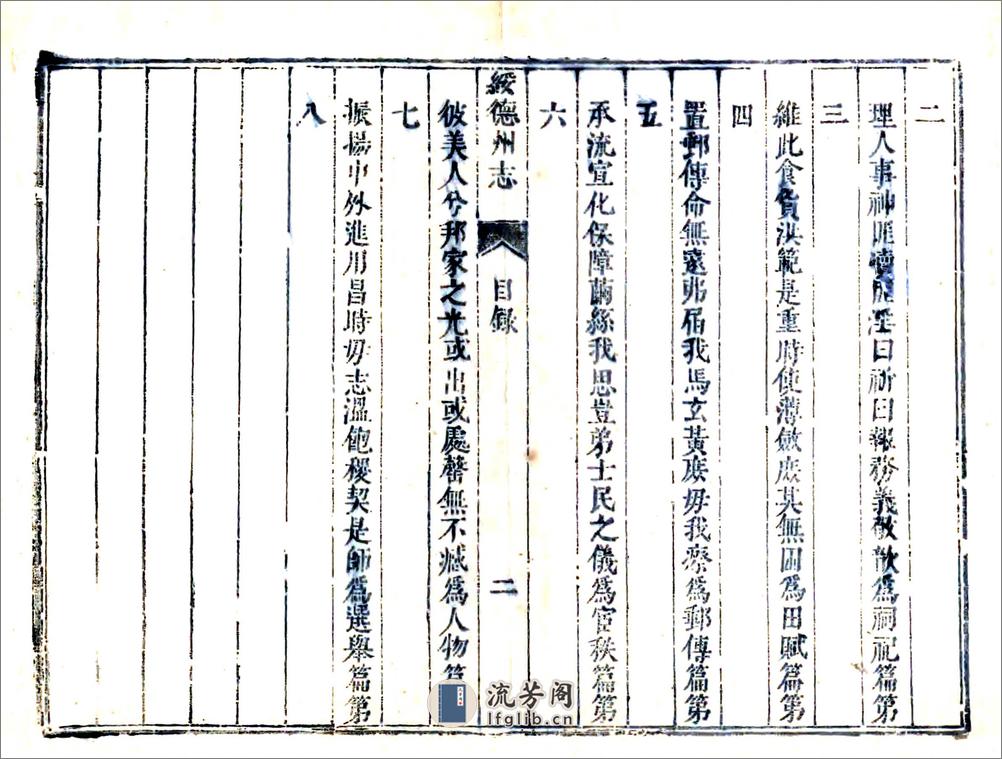 二
理人事神匪瀆匪淫曰祈曰報務義敬歆爲祠祀篇第
三
維此食貨洪範是重時使薄斂庶其無困爲田賦篇第
四
置郵傳命無遠弗屆我馬玄黃庶毋我瘵爲郵傳篇第
五
承流宣化保障繭絲我思豈弟士民之儀爲宦秩篇第
六
綏德州志 目録 二
彼美人兮邦家之光或出或處罄無不臧爲人物篇
七
振揚中外進用昌時毋志溫飽稷契是師爲選舉篇第
八
流芳阁
lfglib.cn